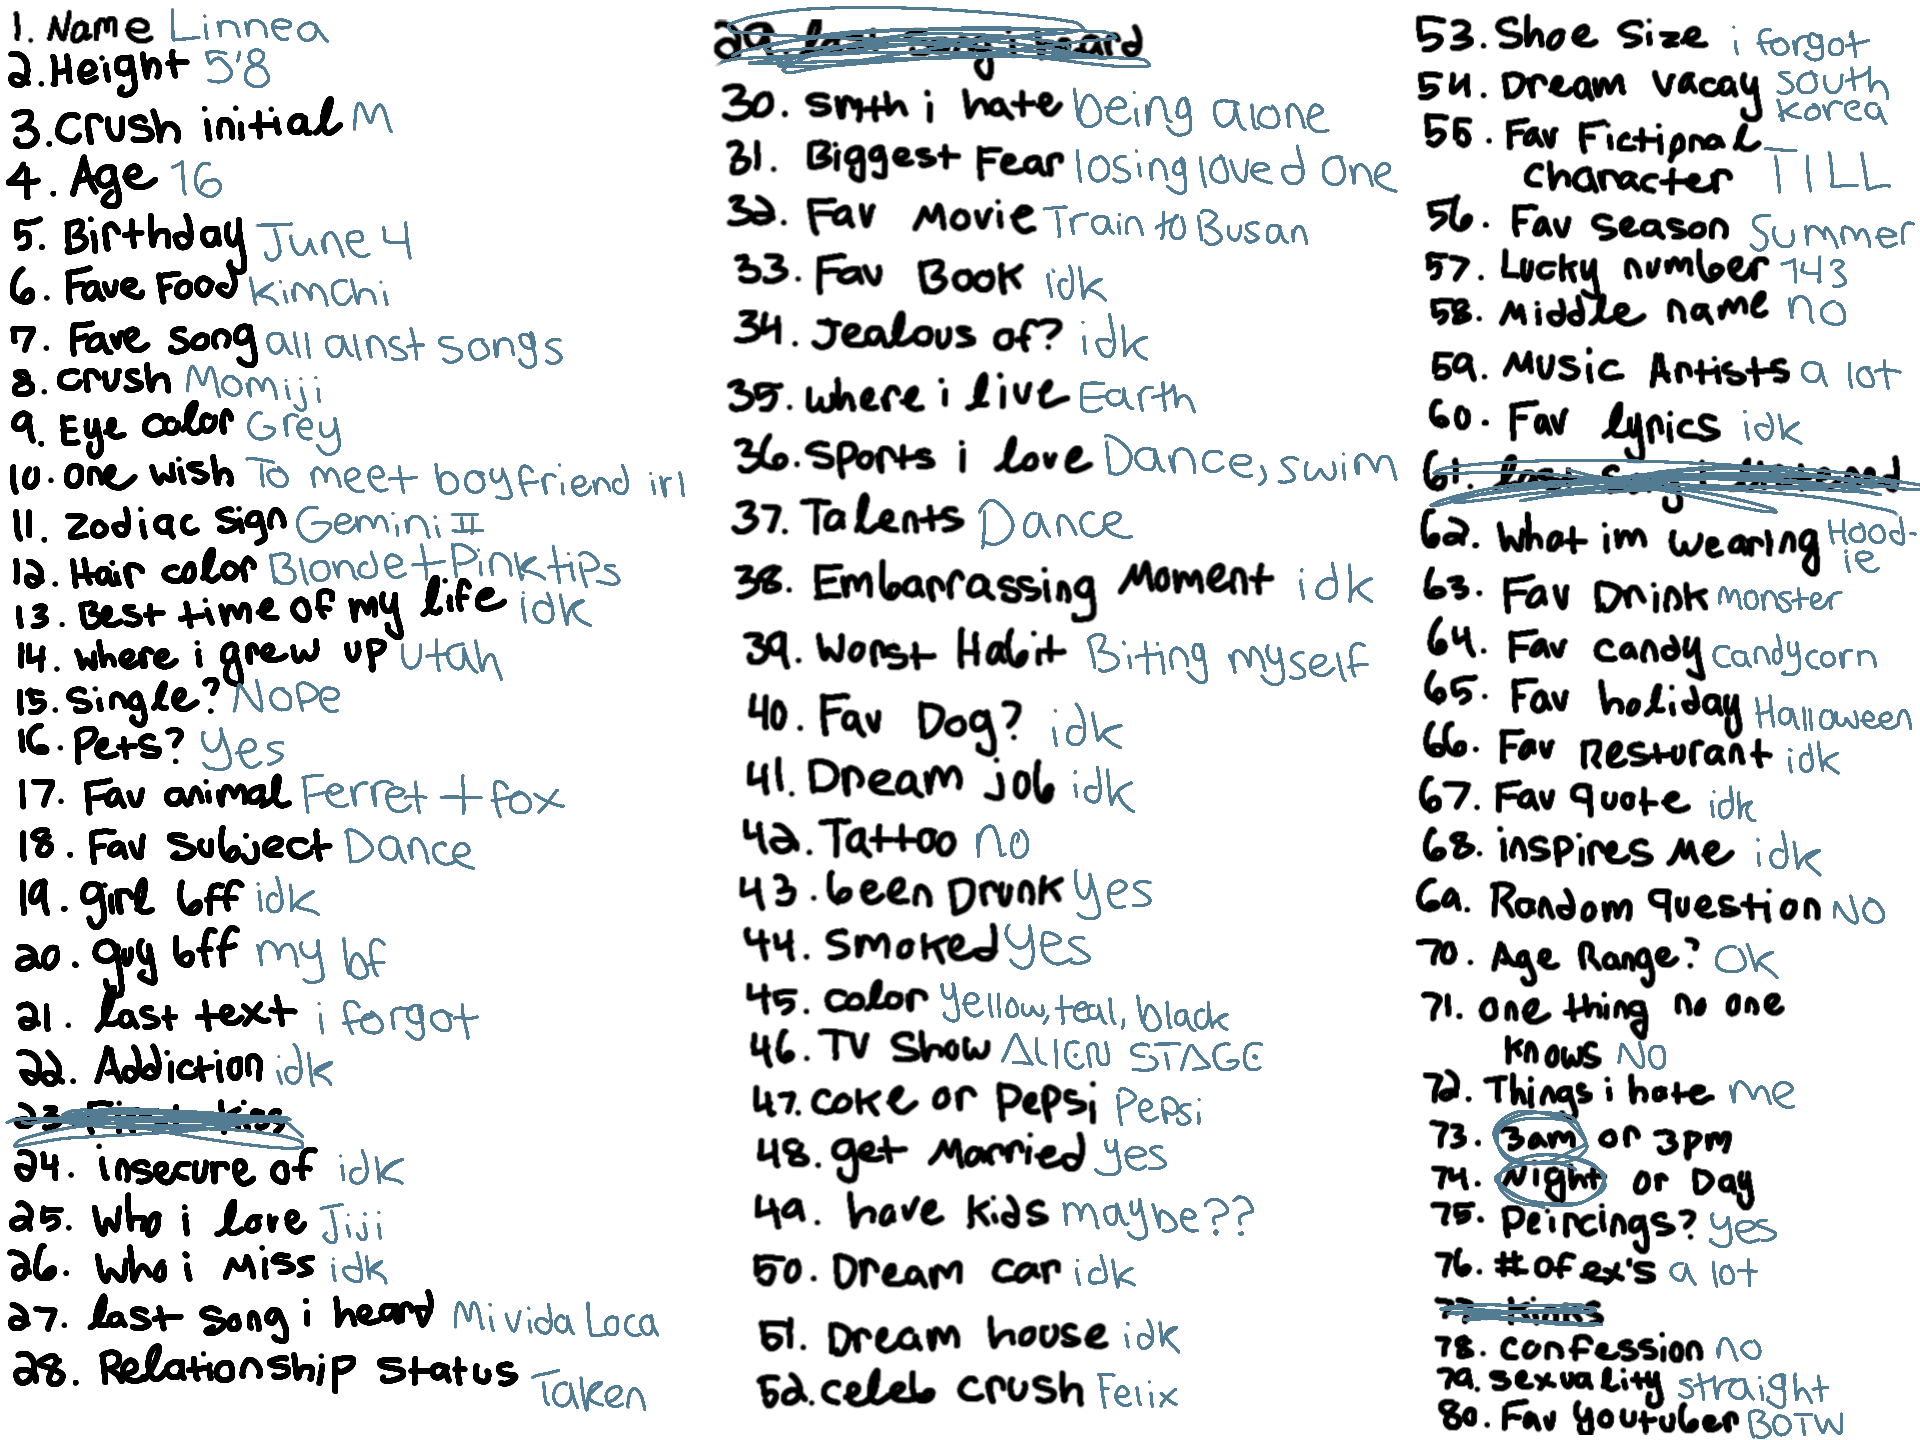 1. Name Linnea
2. Height 5'8
3. crush initial M
4. Age 16
5. Birthday June 4
6. Fave Food Kimchi
7. Fave song all alnst songs
8. crush Momiji
9. Eye color Grey
10. one wish To meet boyfriend irl
11. zodiac sign Gemini II
12. Hair color Blonde + Pink tips
13. Best time of my life idk
14. where i grew up utah
15. single? Nope
16. Pets? yes
17. Fav animal Ferret + fox
18. Fav subject Dance
19. girl bff idk
20. guy bff my bf
21. last text i forgot
22. Addiction idk
23. First kiss
24. insecure of idk
25. Who i love Jiji
26. Who i Miss idk
27. last song i heard Mi vida Loca
28. Relationship status Taken
29. last song i heard
30. smth i hate being alone
31. Biggest Fear losing loved one
32. Fav Movie Train to Busan
33. Fav Book idk
34. Jealous of? idk
35. where i live Earth
36. Sports i love Dance, swim
37. Talents Dance
38. Embarrassing Moment idk
39. Worst Habit Biting myself
40. Fav Dog? idk
41. Dream job idk
42. Tattoo no
43. been Drunk yes
44. Smoked yes
45. color yellow, teal, black
46. TV Show ALIEN STAGE
47. coke or Pepsi Pepsi
48. get Married yes
49. have kids maybe??
50. Dream car idk
51. Dream house idk
52. celeb crush Felix
53. Shoe Size i forgot
54. Dream vacay south
korea
55. Fav Fictional
character TILL
56. Fav season Summer
57. Lucky number 143
58. Middle name no
59. Music Artists a lot
60. Fav lyrics idk
61. last song i listened
62. What im wearing Hood-
ie
63. Fav Drink monster
64. Fav candy candycorn
65. Fav holiday Halloween
66. Fav Resturant idk
67. Fav quote idk
68. inspires Me idk
69. Random question No
70. Age Range? Ok
71. one thing no one
knows No
72. Things i hate me
73. 3am or 3pm
74. Night or Day
75. Peircings? yes
76. # of ex's a lot
77. kinks
78. confession no
79. sexuality straight
80. Fav youtuber BOTW